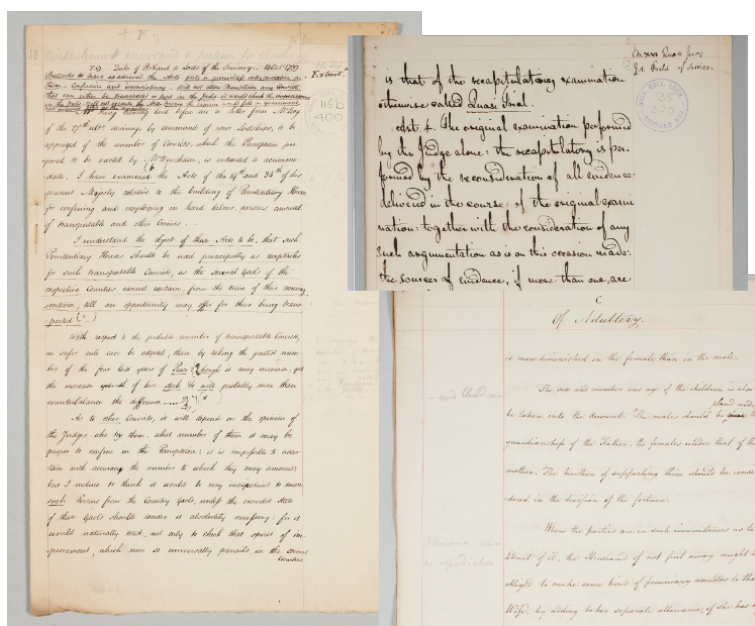 5.) Duke of Portland to Lords of the Treasury. 14 Octr. 1799
Pretends to have examined the Acts puts a
them. Confusion and
Mr King having laid before me a Letter from Mr Long
of the 27th ulto. desiring by command of your Lordships, to be
apprized of the number of Convicts, which the Panopticon pro
posed to be erected by Mr Bentham, is intended to accommo
date, I have examined the Acts of the 19th and 34th of his
present Majesty relative to the building of Penitentiary Houses
for confining and employing in hard labour, persons convicted
of transportable and other Crimes. —
I understand the object of those Acts to be, that such
Penitentiary Houses should be used principally as receptacles
for such transportable Convicts, as the several Gaols of the
respective Counties cannot contain, from the time of their receiving
sentence, till an opportunity may offer for their being trans
ported
With respect to the probable number of transportable Convicts,
no safer rule can be adopted, than by taking the greatest num
ber of the four last years of Peace: though it may increase, yet
the increased spread of our will probably more than
counterbalance the difference.
As to other Convicts, it will depend on the opinion of
the Judges who try them, what number of them it may be
proper to confine in the Panopticon: it is impossible to ascer
tain with accuracy the number to which they may amount:
but I incline to think it would be very inexpedient to move
such Persons from the Country Gaols, unless the crowded state
of those Gaols should render it absolutely necessary: for it
would naturally tend, not only to check that spirit of im
provement, which now so universally prevails in the several
Counties
Extract
115b
400
is that of the recapitulatory examination
otherwise called Quasi Trial.
Art. 4. The original examination performed
by the Judge alone: the recapitulatory is per-
formed by the reconsideration of all evidence
delivered in the course of the original exami
nation: together with the consideration of any
such argumentation as is on this occasion made:
the sources of evidence, if more than one, are
UNIV. COLL. LOND.
C
Of Adultery.
is more diminished in the female than in the male.
The sex also number and age of the children is also
placed under
be taken into the account. The males should be
guardianship of the Father, the females under that of the
mother. The burthen of supporting them should be consi
dered in the division of the fortune.
When the parties are in such circumstances as to
admit of it, the Husband if not put away might be
obliged to make some kind of pecuniary amends to the
Wife, by adding to her separate allowance, if she has a